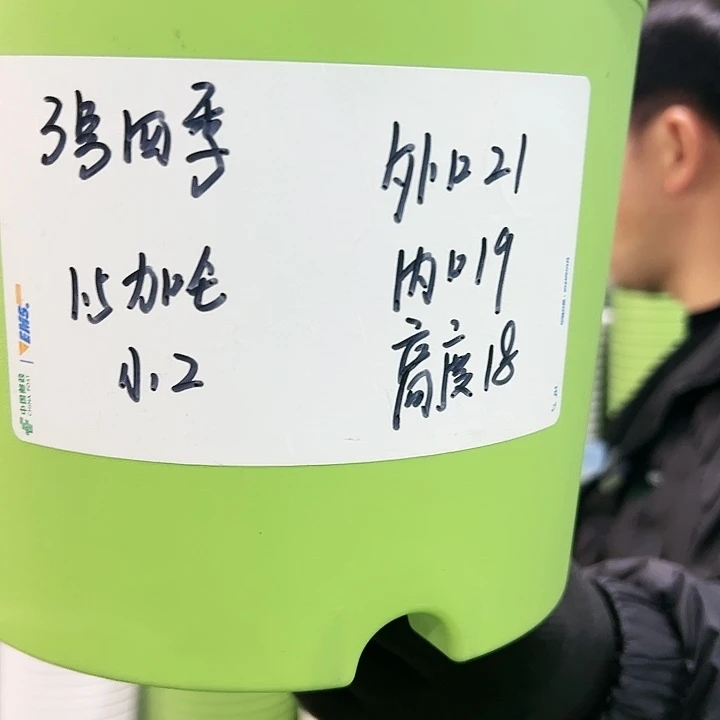 3号四季
1.5加仑
小2
外口21
内口19
高度18
EMS
中国邮政
CHINA POST